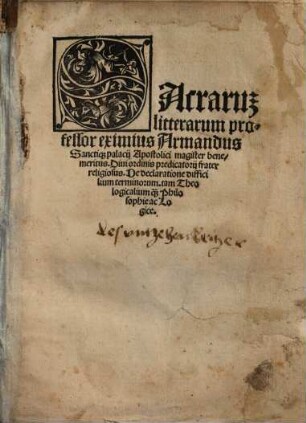 SAcraruz
litterarum pro-
fessor eximius Armandus
Sanctiq; palacij Apostolici magister bene/
meritus. Diui ordinis predicatorij frater
religiosus. De declaratione diffici
lium terminorum. tam Theo
logicalium q̃ Philo
sophie ac Lo
gice.